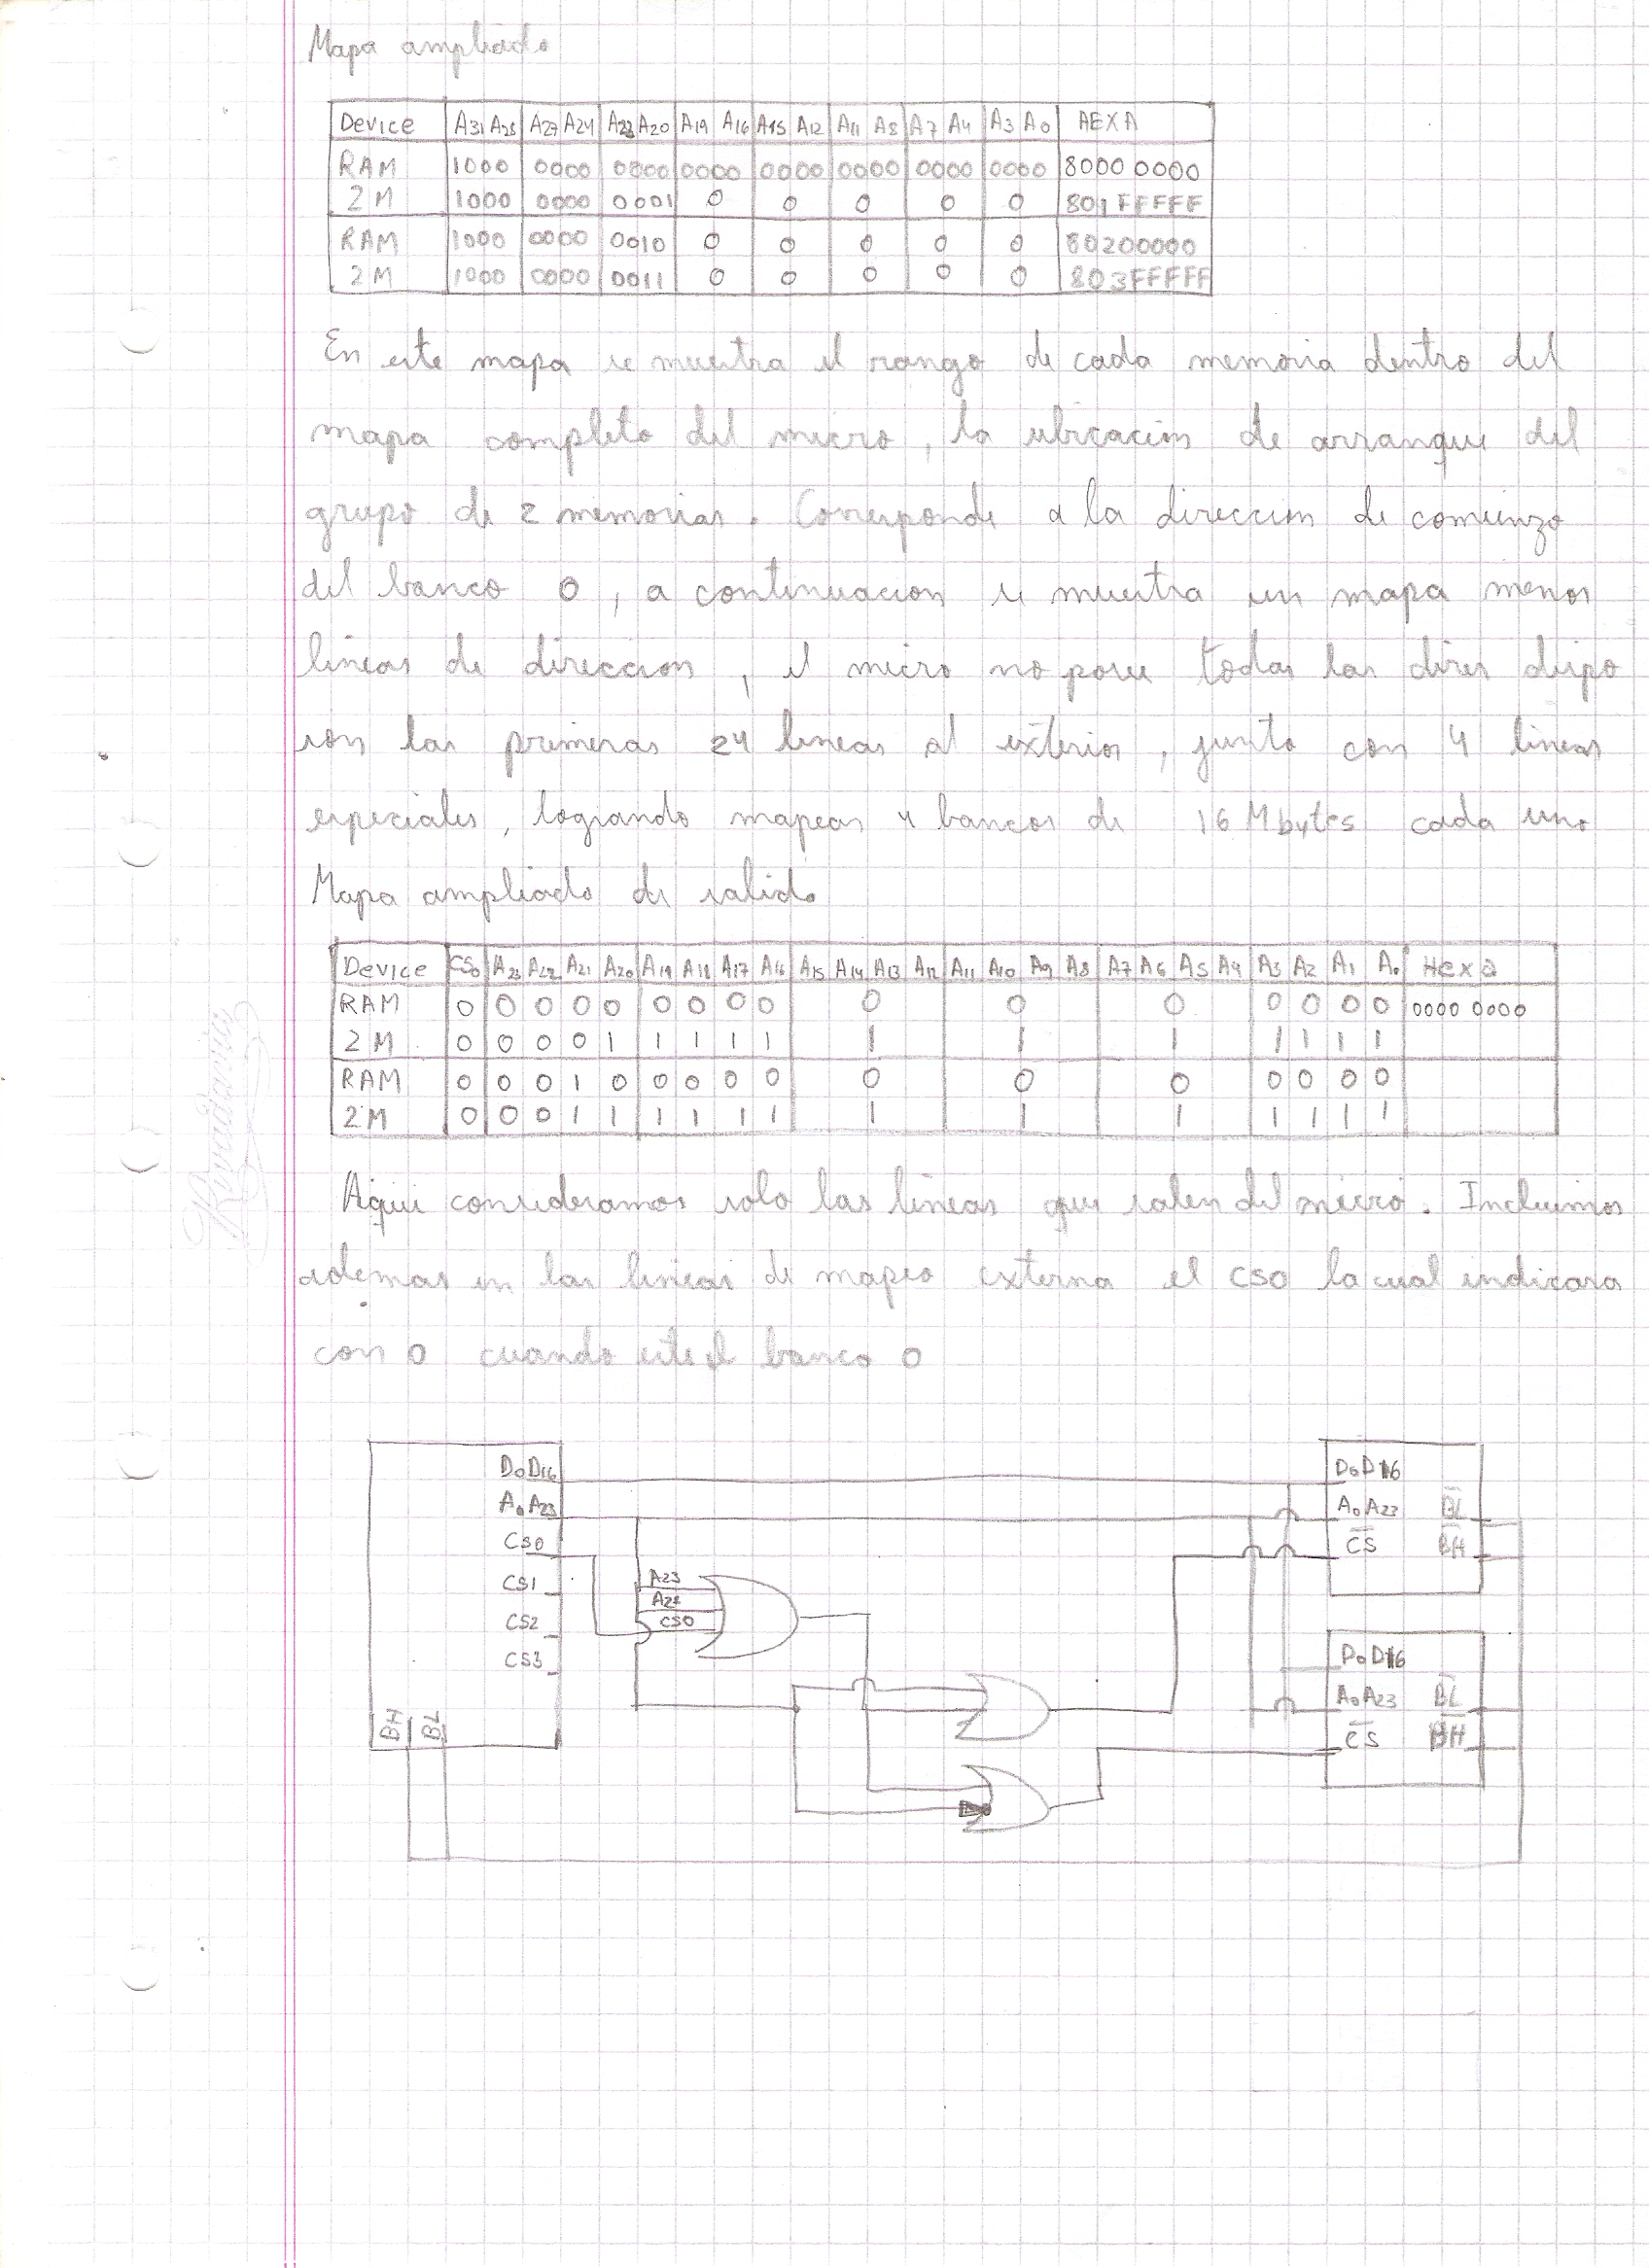 Mapa ampliado
Device A31 A28 A27 A24 A23 A20 A19 A16 A15 A12 A11 A8 A7 A4 A3 A0 AEXA
RAM 1000 0000 0000 0000 0000 0000 0000 0000 8000 0000
2M 1000 0000 0001 0 0 0 0 0 801FFFFF
RAM 1000 0000 0010 0 0 0 0 0 80200000
2M 1000 0000 0011 0 0 0 0 0 803FFFFF
En este mapa se muestra el rango de cada memoria dentro del
mapa completo del micro, la ubicacion de arranque del
grupo de 2 memorias. Corresponde a la direccion de comienzo
del banco 0, a continuacion se muestra un mapa menos
lineas de direccion, el micro no posee todas las dires dispo
son las primeras 24 lineas al exterior, junto con 4 lineas
especiales, logrando mapear 4 bancos de 16 Mbytes cada uno
Mapa ampliado de salida
Device CS0 A23 A22 A21 A20 A19 A18 A17 A16 A15 A14 A13 A12 A11 A10 A9 A8 A7 A6 A5 A4 A3 A2 A1 A0 Hexa
RAM 0 0 0 0 0 0 0 0 0 0 0 0 0 0 0 0 0000 0000
2M 0 0 0 0 1 1 1 1 1 1 1 1 1 1 1 1
RAM 0 0 0 1 0 0 0 0 0 0 0 0 0 0 0 0
2M 0 0 0 1 1 1 1 1 1 1 1 1 1 1 1 1
Aqui consideramos solo las lineas que salen del micro. Incluimos
ademas en las lineas de mapeo externa el CS0 la cual indicara
con 0 cuando este el banco 0
D0D16
A0A23
CS0
CS1
CS2
CS3
BH BL
A23
CS0
D0D16
A0A23 BL
CS BH
D0D16
A0A23 BL
CS BH
Rivadavia